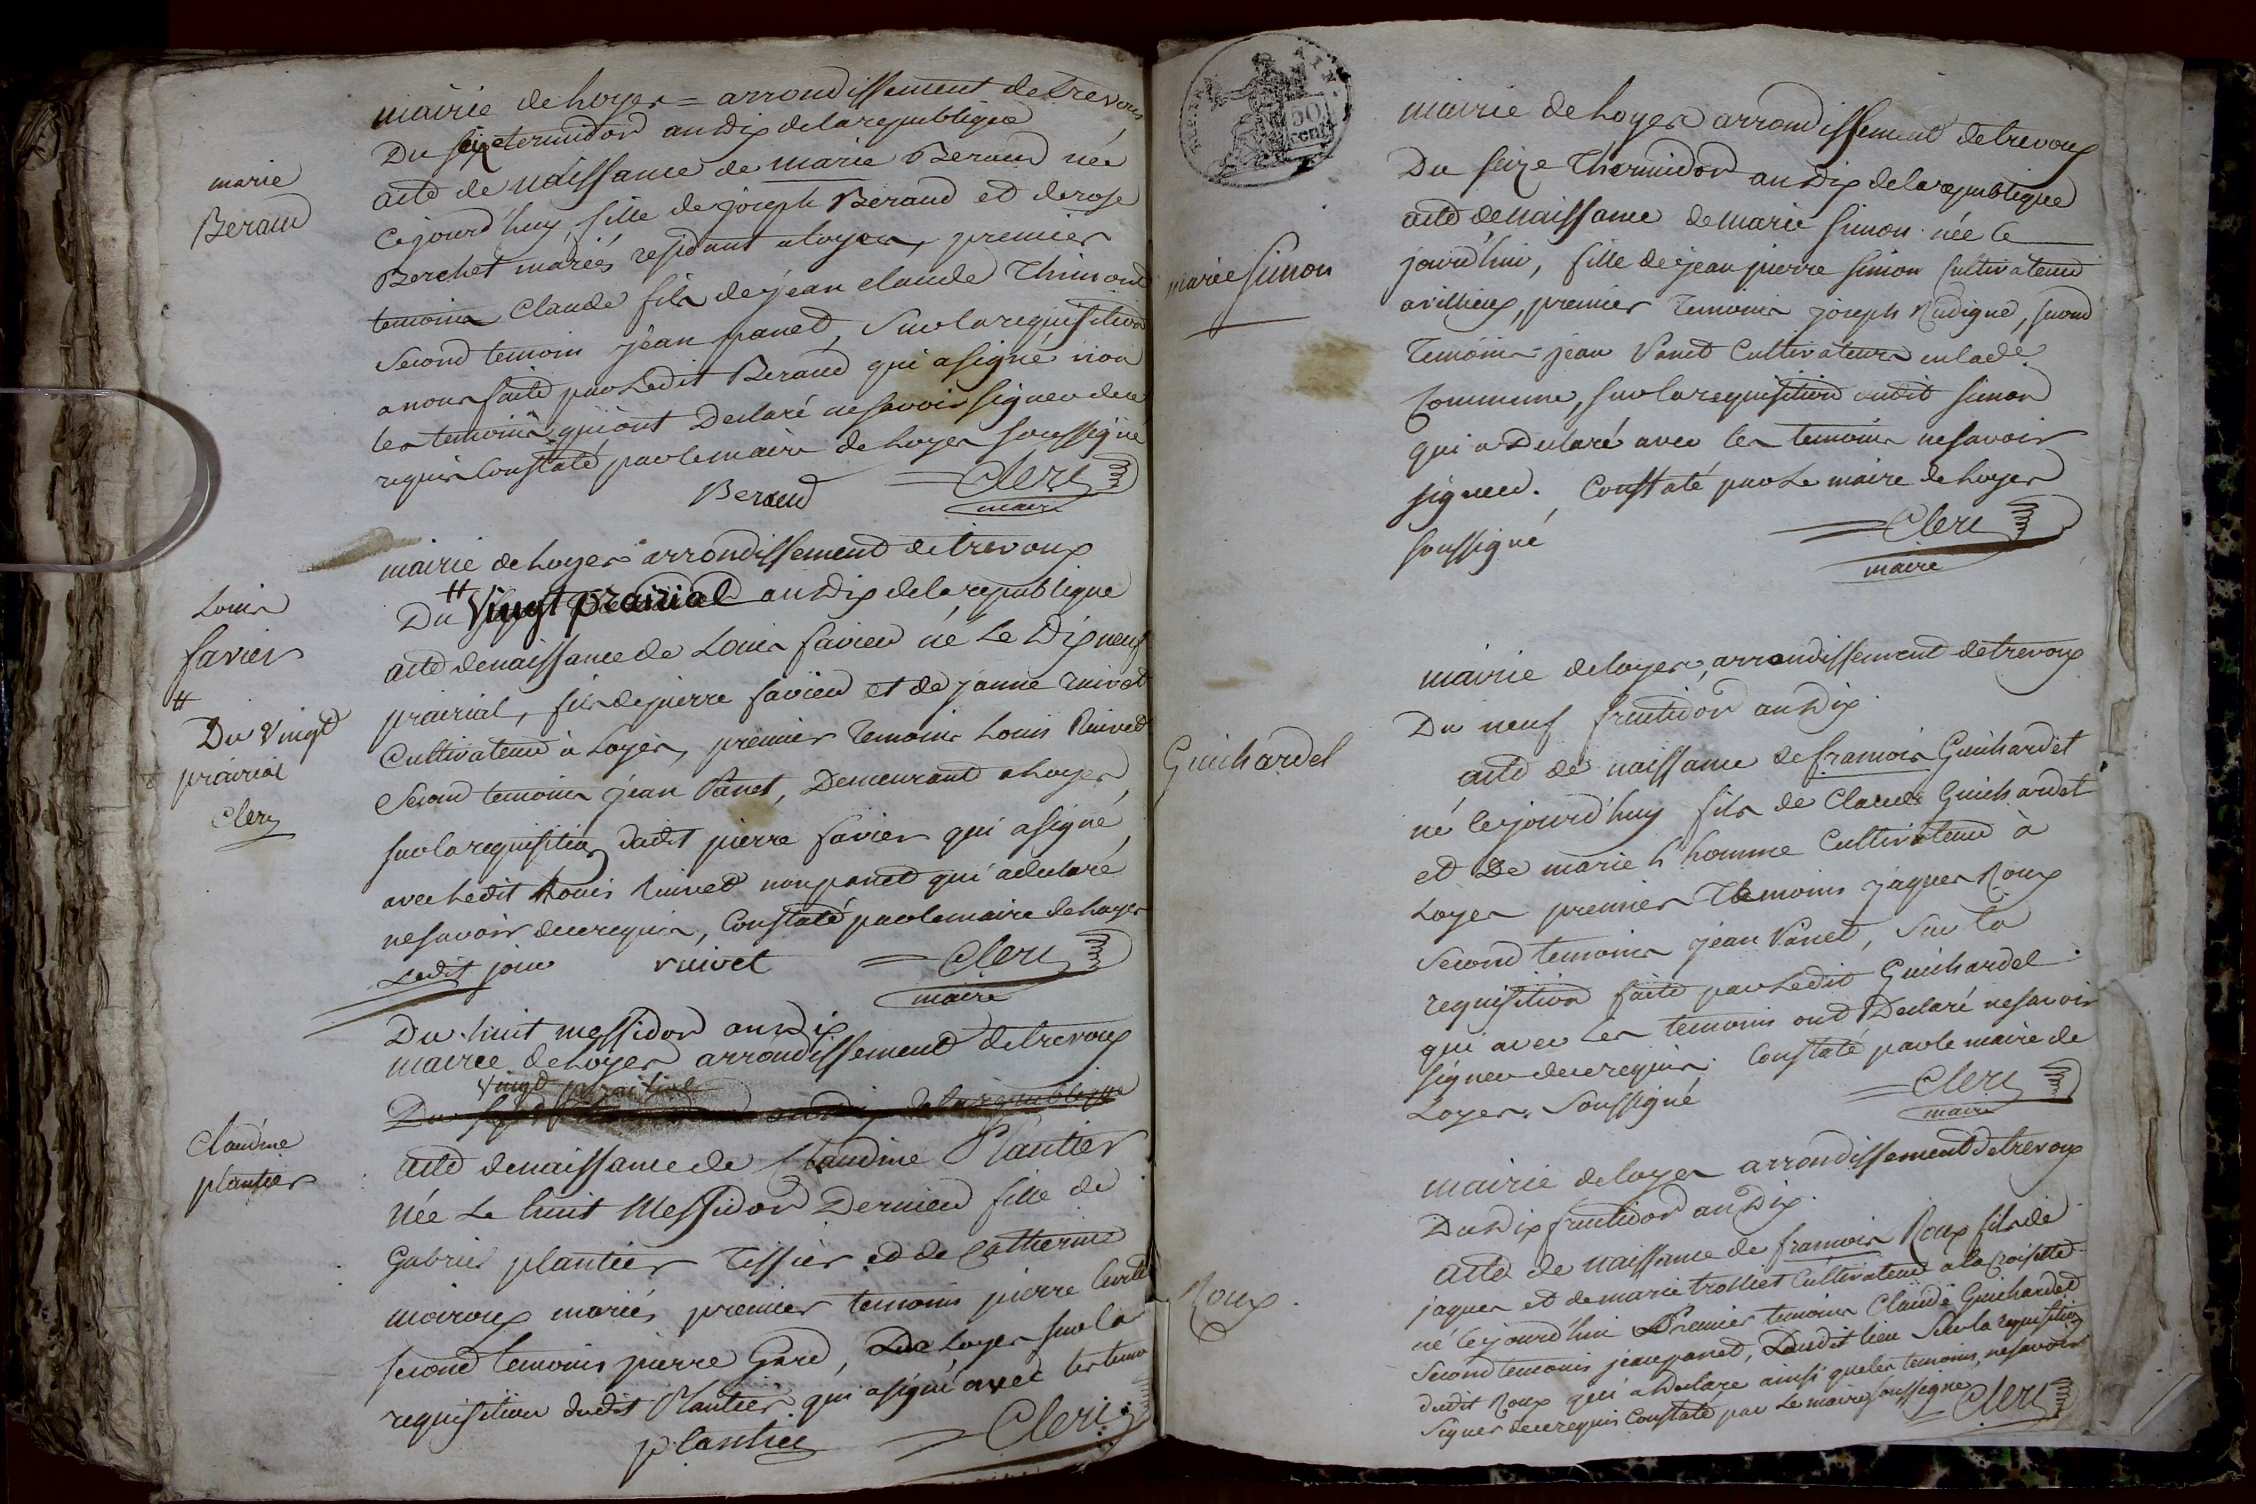 mairie de Loyes = arrondissement de trevoux
Du six termidor an dix de la republique
marie
Beraud
acte de naissance de marie Beraud née
cejourd'huy, fille de joseph Beraud et de rose
Berchet mariés residant a loyes, premier
temoins Claude fils de jean claude Thimond
Second temoin jean panet, Sur la requisition
a nous faite par Ledit Beraud qui a signé non
les temoins qui ont Declaré ne savoir signer de ce
requis Constaté par le maire de Loyes soussigné
Beraud Clerc
maire
mairie de Loyes arrondissement de trevoux
Louis
favier
#
Du vingt
prairial
Clerc
Du # vingt prairial an dix de la republique
acte de naissance de Louis favier né Le Dix neuf
prairial, fils de pierre favier et de janne ruivet
Cultivateur à Loyes, premier Temoins Louis Ruivet
Second temoins jean Panet, Demeurant a Loyes,
sur la requisition dudit pierre favier qui a signé
avec Ledit Louis Ruivet non panet qui a declaré
ne savoir de ce requis, Constaté par le maire de Loyes
Ledit jour ruivet Clerc
maire
Du huit messidor an dix
mairee de Loyes arrondissement de trevoux
vingt prairial
Du an dix de la republique
Claudine
plantier
acte de naissance de Claudine Plantier
née Le huit Messidor Dernier fille de
Gabriel plantier Tissier et de Catherine
moiroux mariés premier temoins pierre
second temoins pierre Gard, De Loyes sur la
requisition dudit Plantier qui a signé avec les temo
plantier Clerc
50
cent
mairie de Loyes arrondissement de trevoux
Du seize Thermidor an dix de la republique
marie Simon
acte de naissance de marie Simon née ce
jourd'hui, fille de jean pierre Simon Cultivateur
a villieux, premier temoins joseph Rudigne, second
Temoins jean Panet Cultivateurs en lade
Commune, sur la requisition dudit Simon
qui a Declaré avec les temoins ne savoir
signer. Constaté par Le maire de Loyes
soussigné
Clerc
maire
mairie de Loyes, arrondissement de trevoux
Du neuf fructidor an dix
Guichardet
acte de naissance de francois Guichardet
né cejourd'huy fils de Claude Guichardet
et De marie L'homme Cultivateur à
Loyes premier Temoins jaques Roux
Second temoins jean Panet, Sur la
requisition faite par Ledit Guichardet
qui avec les temoins ont Declaré ne savoir
signer de ce requis. Constaté par le maire de
Loyes Soussigné Clerc
maire
mairie de loyes arrondissement de trevoux
Du Dix fructidor an dix.
Roux
acte de naissance de francois Roux fils de
jaques et de marie trolliet Cultivateur a la Croisette
né cejourd'hui Premier temoins Claude Guichardet
Second temoins jean panet, Dudit lieu Sur la requisition
dudit Roux qui a Declare ainsi que les temoins, ne savoir
signer de ce requis Constaté par Le maire soussigné Clerc